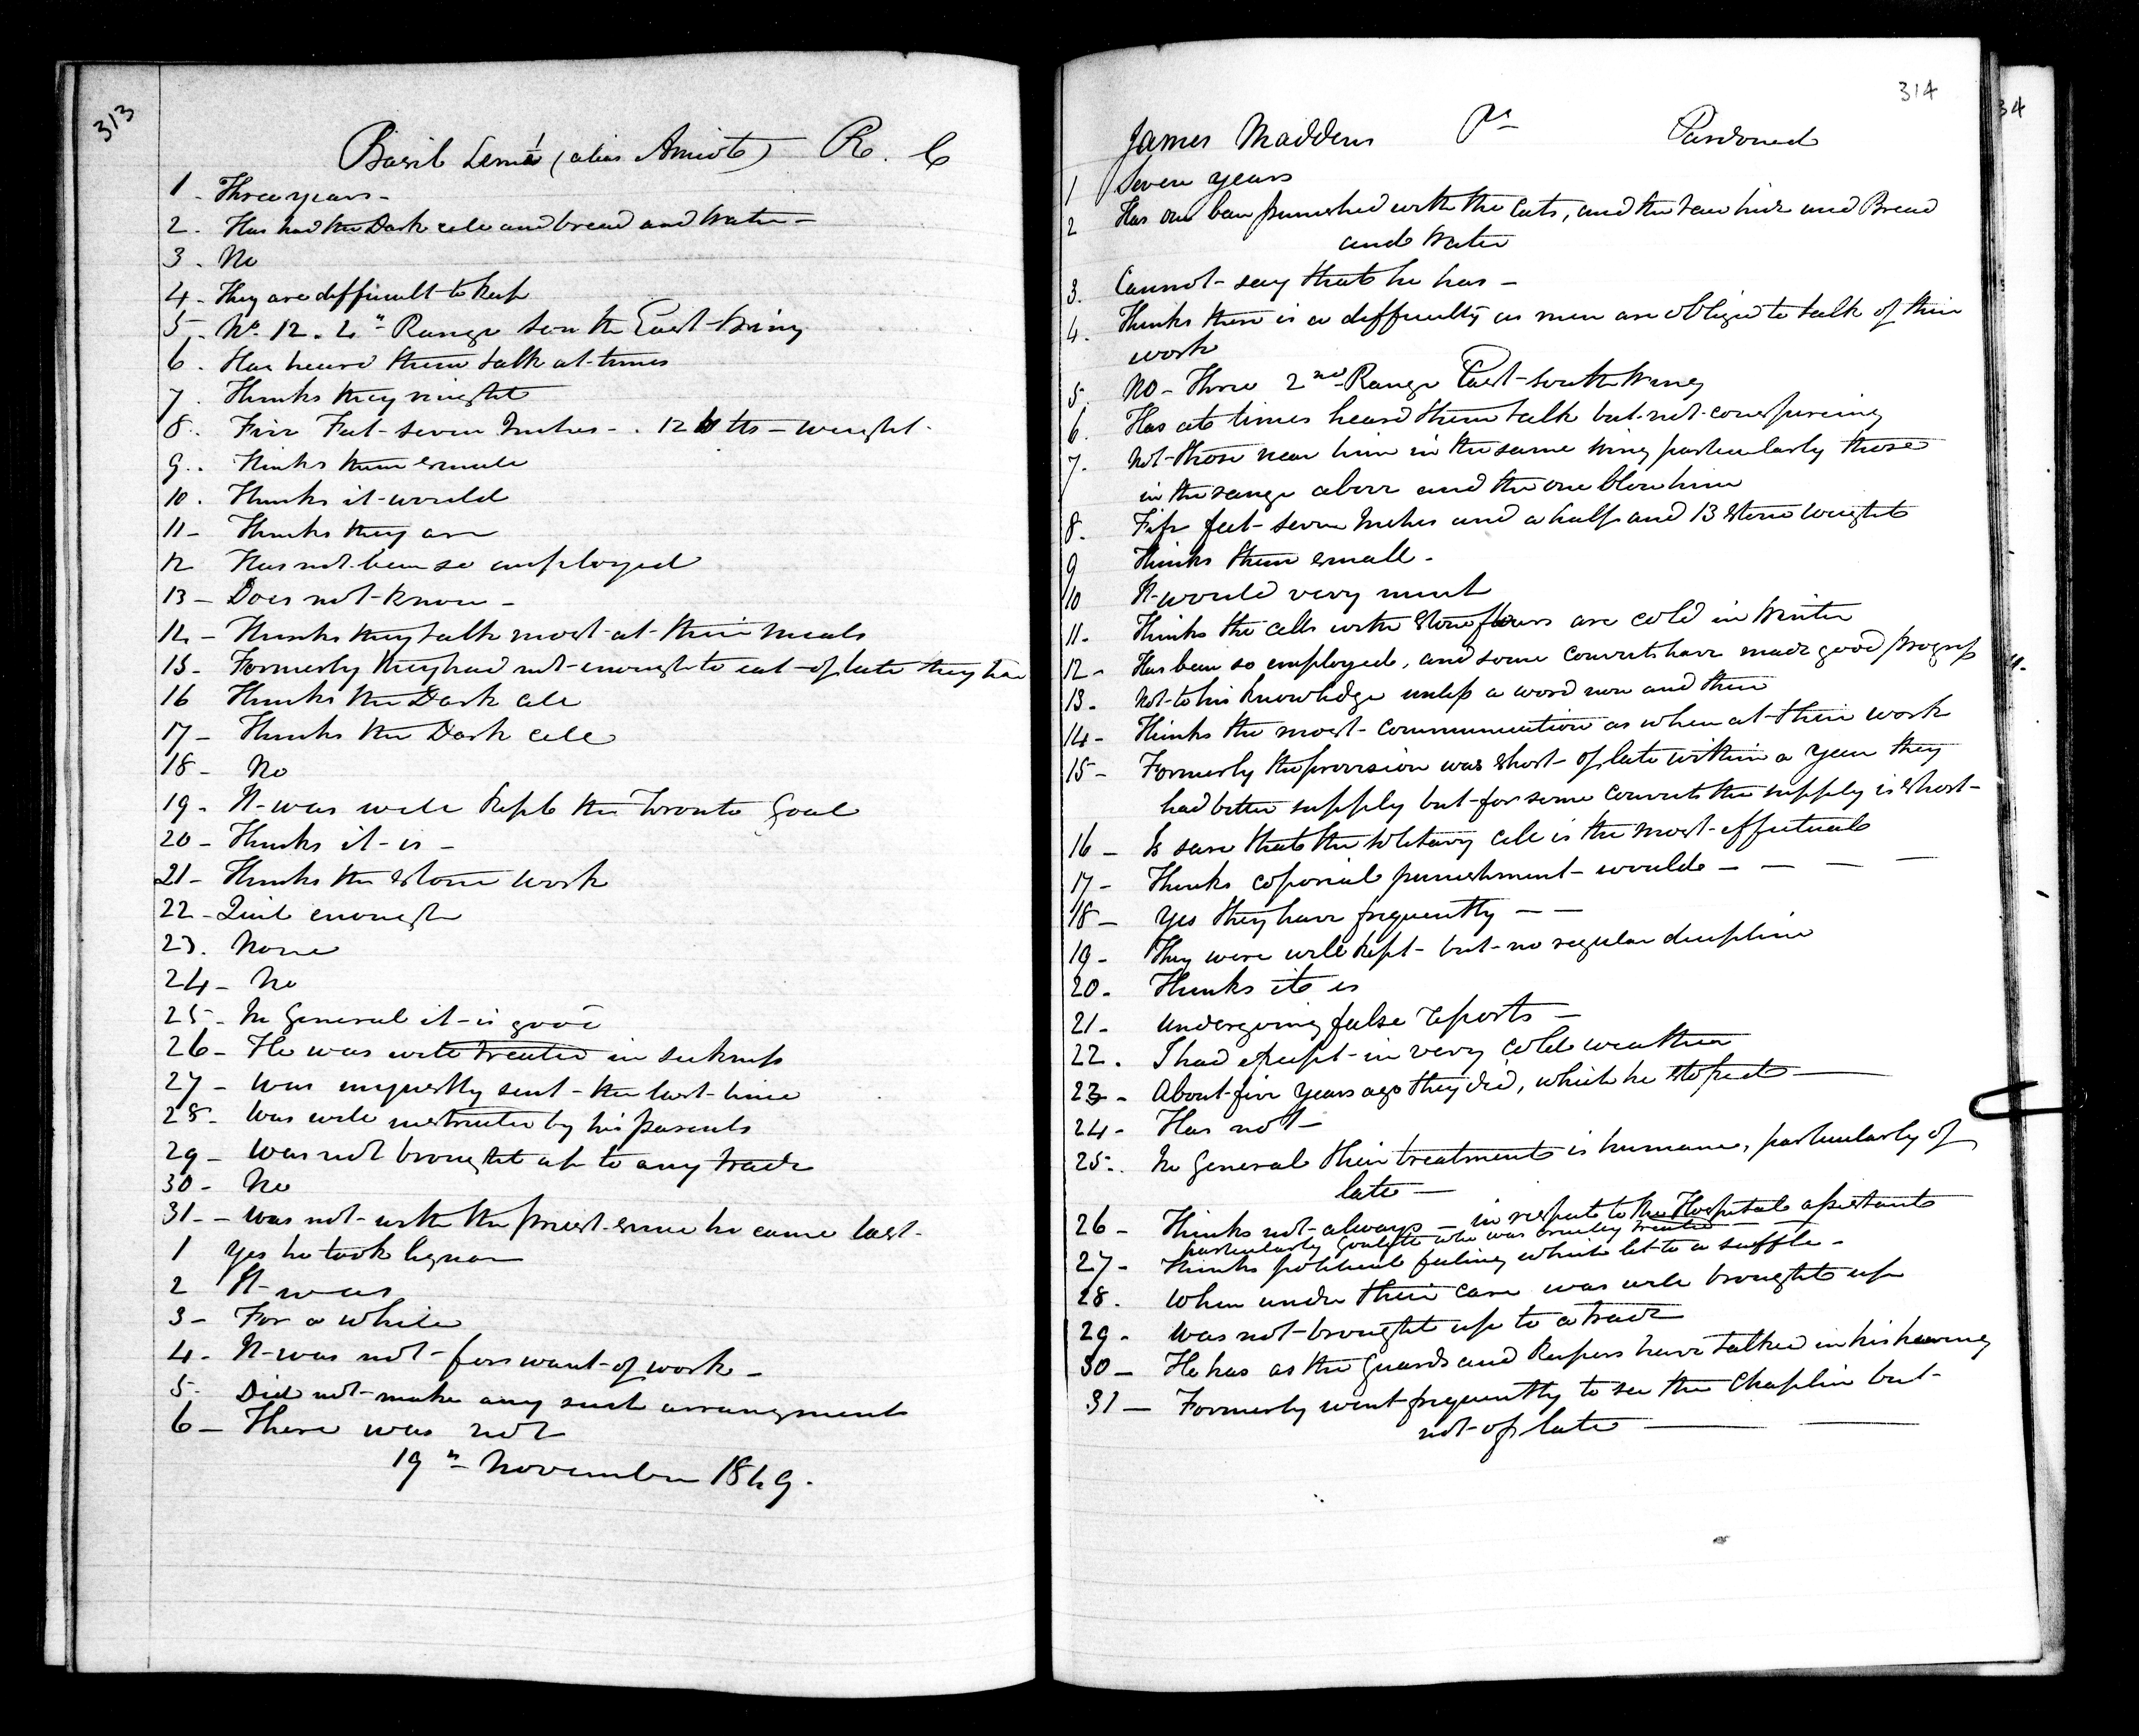 313
Basil Lemé (alias Amiote) R. C
1 - Three years -
2. Has had the Dark cell and bread and Water -
3. No
4 - They are difficult to keep
5 - No. 12. 4th Range South East Wing
6. Has heard them talk at times
7. Thinks they might
8. Five Feet - seven Inches - . 12 tts - weight.
9. Thinks them small
10. Thinks it would
11 - Thinks they are
12 Has not been so employed
13 - Does not know -
14 - Thinks they talk most at their meals
15 - Formerly they had not enough to eat - of late they have
16 Thinks the Dark cell
17 - Thinks the Dark Cell
18 - No
19 - It was well kept the Toronto Goal
20 - Thinks it is -
21 - Thinks the stone work
22 - Quite enough
23. None
24 - No
25 - In General it is good
26 - He was well treated in sickness
27 - Was unjustly sent - the last time
28 - Was well instructed by his parents
29 - Was not brought up to any trade
30 - No
31 - Was not with the priest since he came last -
1 Yes he took liquor
2 It was
3 - For a while
4 - It was not - for want of work -
5 - Did not make any such arrangment
6 - There was not
19th November 1849.
314
James Maddens Pt Pardoned
1 Seven years
2 Has been punished with the Cats, and the raw hide and Bread
and Water
3. Cannot say that he has -
4. Thinks there is a difficulty as men are obliged to talk of their
work
5. No - Three 2nd Range East South Wing
6. Has at times heard them talk but not conspireing
7. Not those near him in the same wing particularly those
in the range above and the one blow him
8. Five feet - seven Inches and a half and 13 stone weight
9 Thinks them small -
10 It would very much
11. Thinks the cells with stone floors are cold in Winter
12 - Has been so employed, and some convicts have made good progress
13 - Not to his knowledge unless a word now and then
14 - Thinks the most communication as when at their work
15 - Formerly the provision was short - of late within a year they
had better supply but for some convicts the supply is short -
16 - Is sure that the solitary cell is the most effectual
17 - Thinks coporial punishment would - - - -
18 - Yes they have frequently - -
19 - They were well kept - but no regular discipline
20 - Thinks it is
21 - Undergoing false reports -
22. I had except in very cold weather
23 - About five years ago they did, which he stoped -
24 - Has not -
25 - In General their treatment is humane, particularly of
late -
26 - Thinks not always - in respect to the Hospital assistants
particularly who was cruelly treated -
27 - Thinks political feeling which let to a suffle -
28. When under their care was well brought up
29. Was not brought up to a trade
30 - He has as the guards and Keepers have talked in his hearing
31 - Formerly went frequently to see the Chaplin but -
not of late -
34